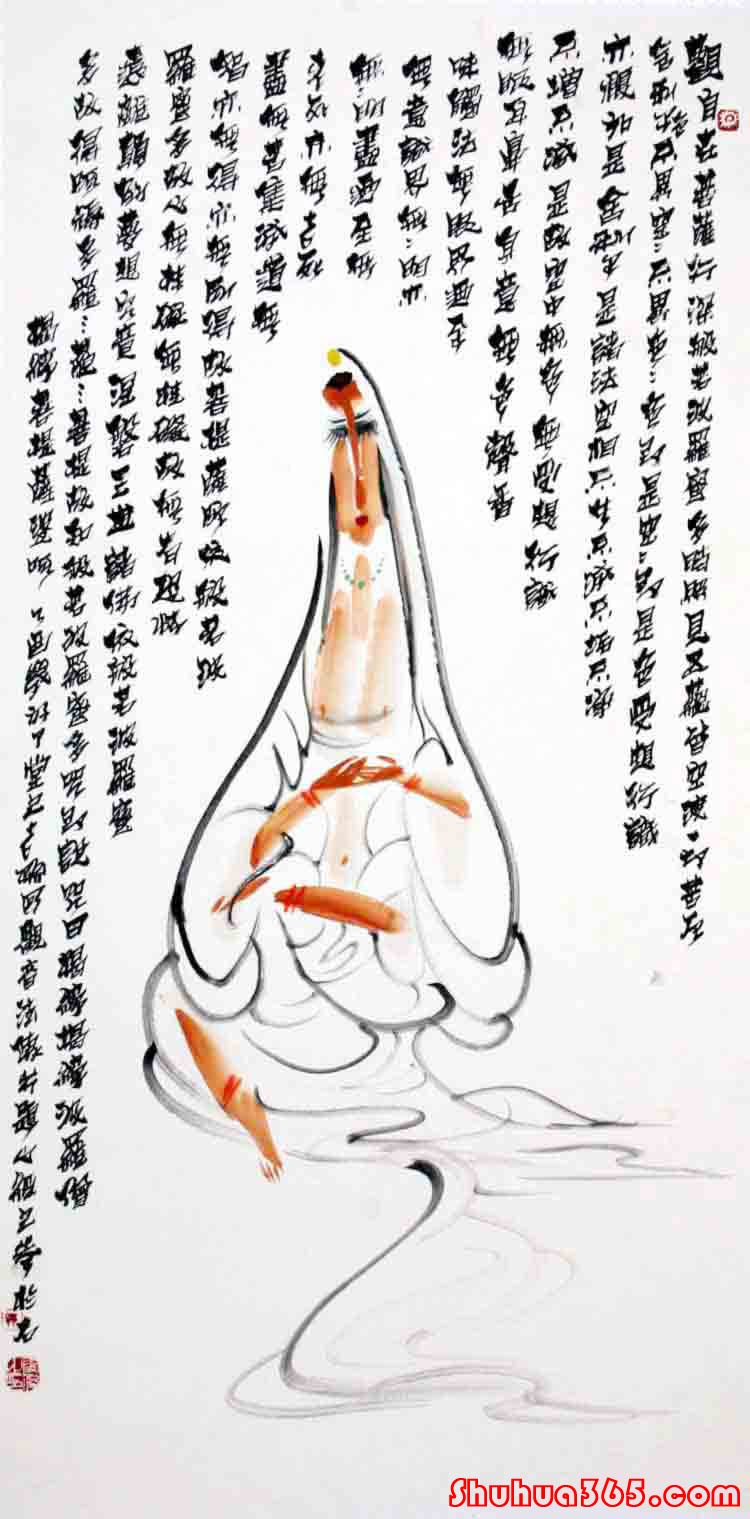 觀自在菩薩行深般若波羅蜜多時照見五蘊皆空度一切苦厄
舍利子色不異空〻不異色〻即是空〻即是色受想行識
亦復如是舍利子是諸法空相不生不滅不垢不淨
不增不減是故空中無色無受想行識
無眼耳鼻舌身意無色聲香
味觸法無眼界乃至
無意識界無〻明亦
無〻明盡乃至無
老死亦無老死
盡無苦集滅道無
智亦無得以無所得故菩提薩埵依般若波
羅蜜多故心無罣礙無罣礙故無有恐怖
遠離顛倒夢想究竟涅槃三世諸佛依般若波羅蜜
多故得阿耨多羅三藐三菩提故般若波羅蜜多咒即說咒曰揭諦揭諦波羅揭
揭諦菩提薩婆訶
Shuhua365.com